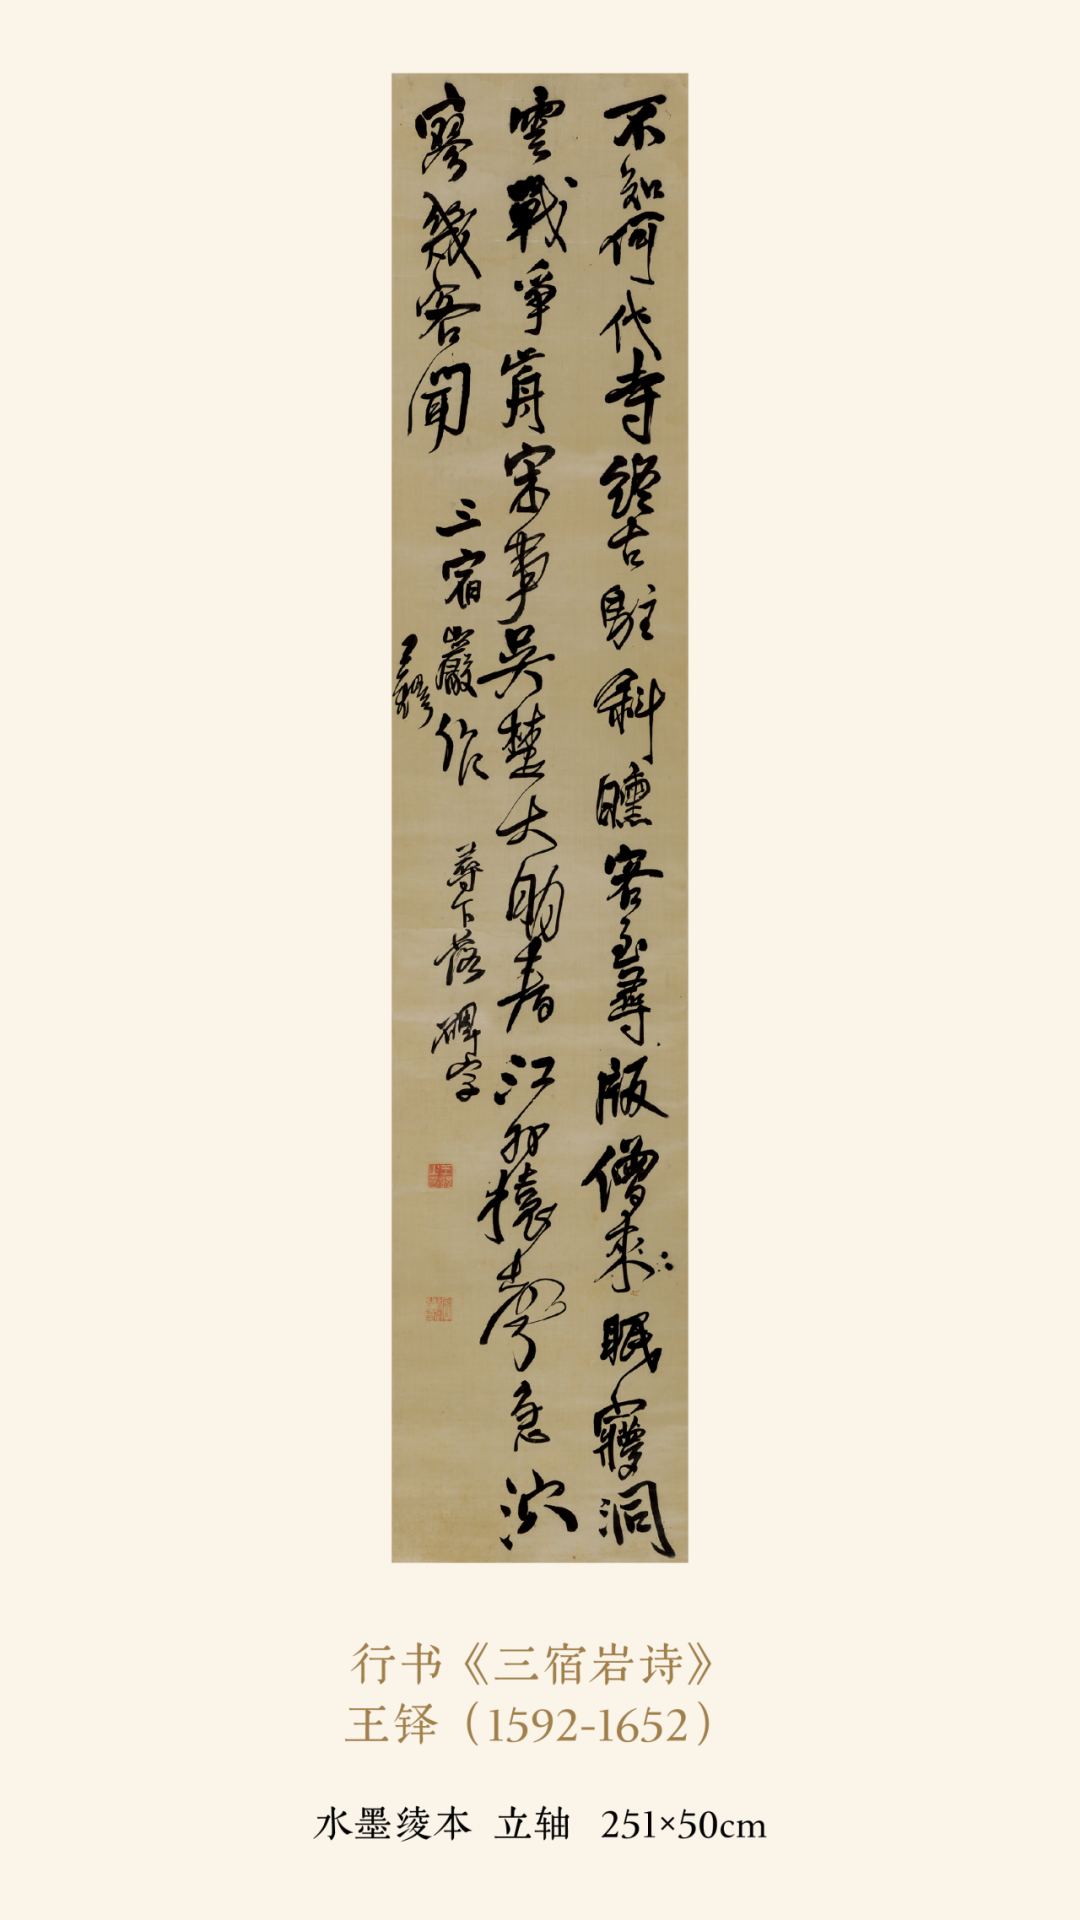 不知何代寺終古駐斜曛客至尋版僧來眠寢洞
雲戰爭前宋事吳楚大助春江外猿聲急泬
寥幾客聞
三宿巖作
王鐸
尋下落碑字
行书《三宿岩诗》
王铎（1592-1652）
水墨绫本 立轴 251×50cm